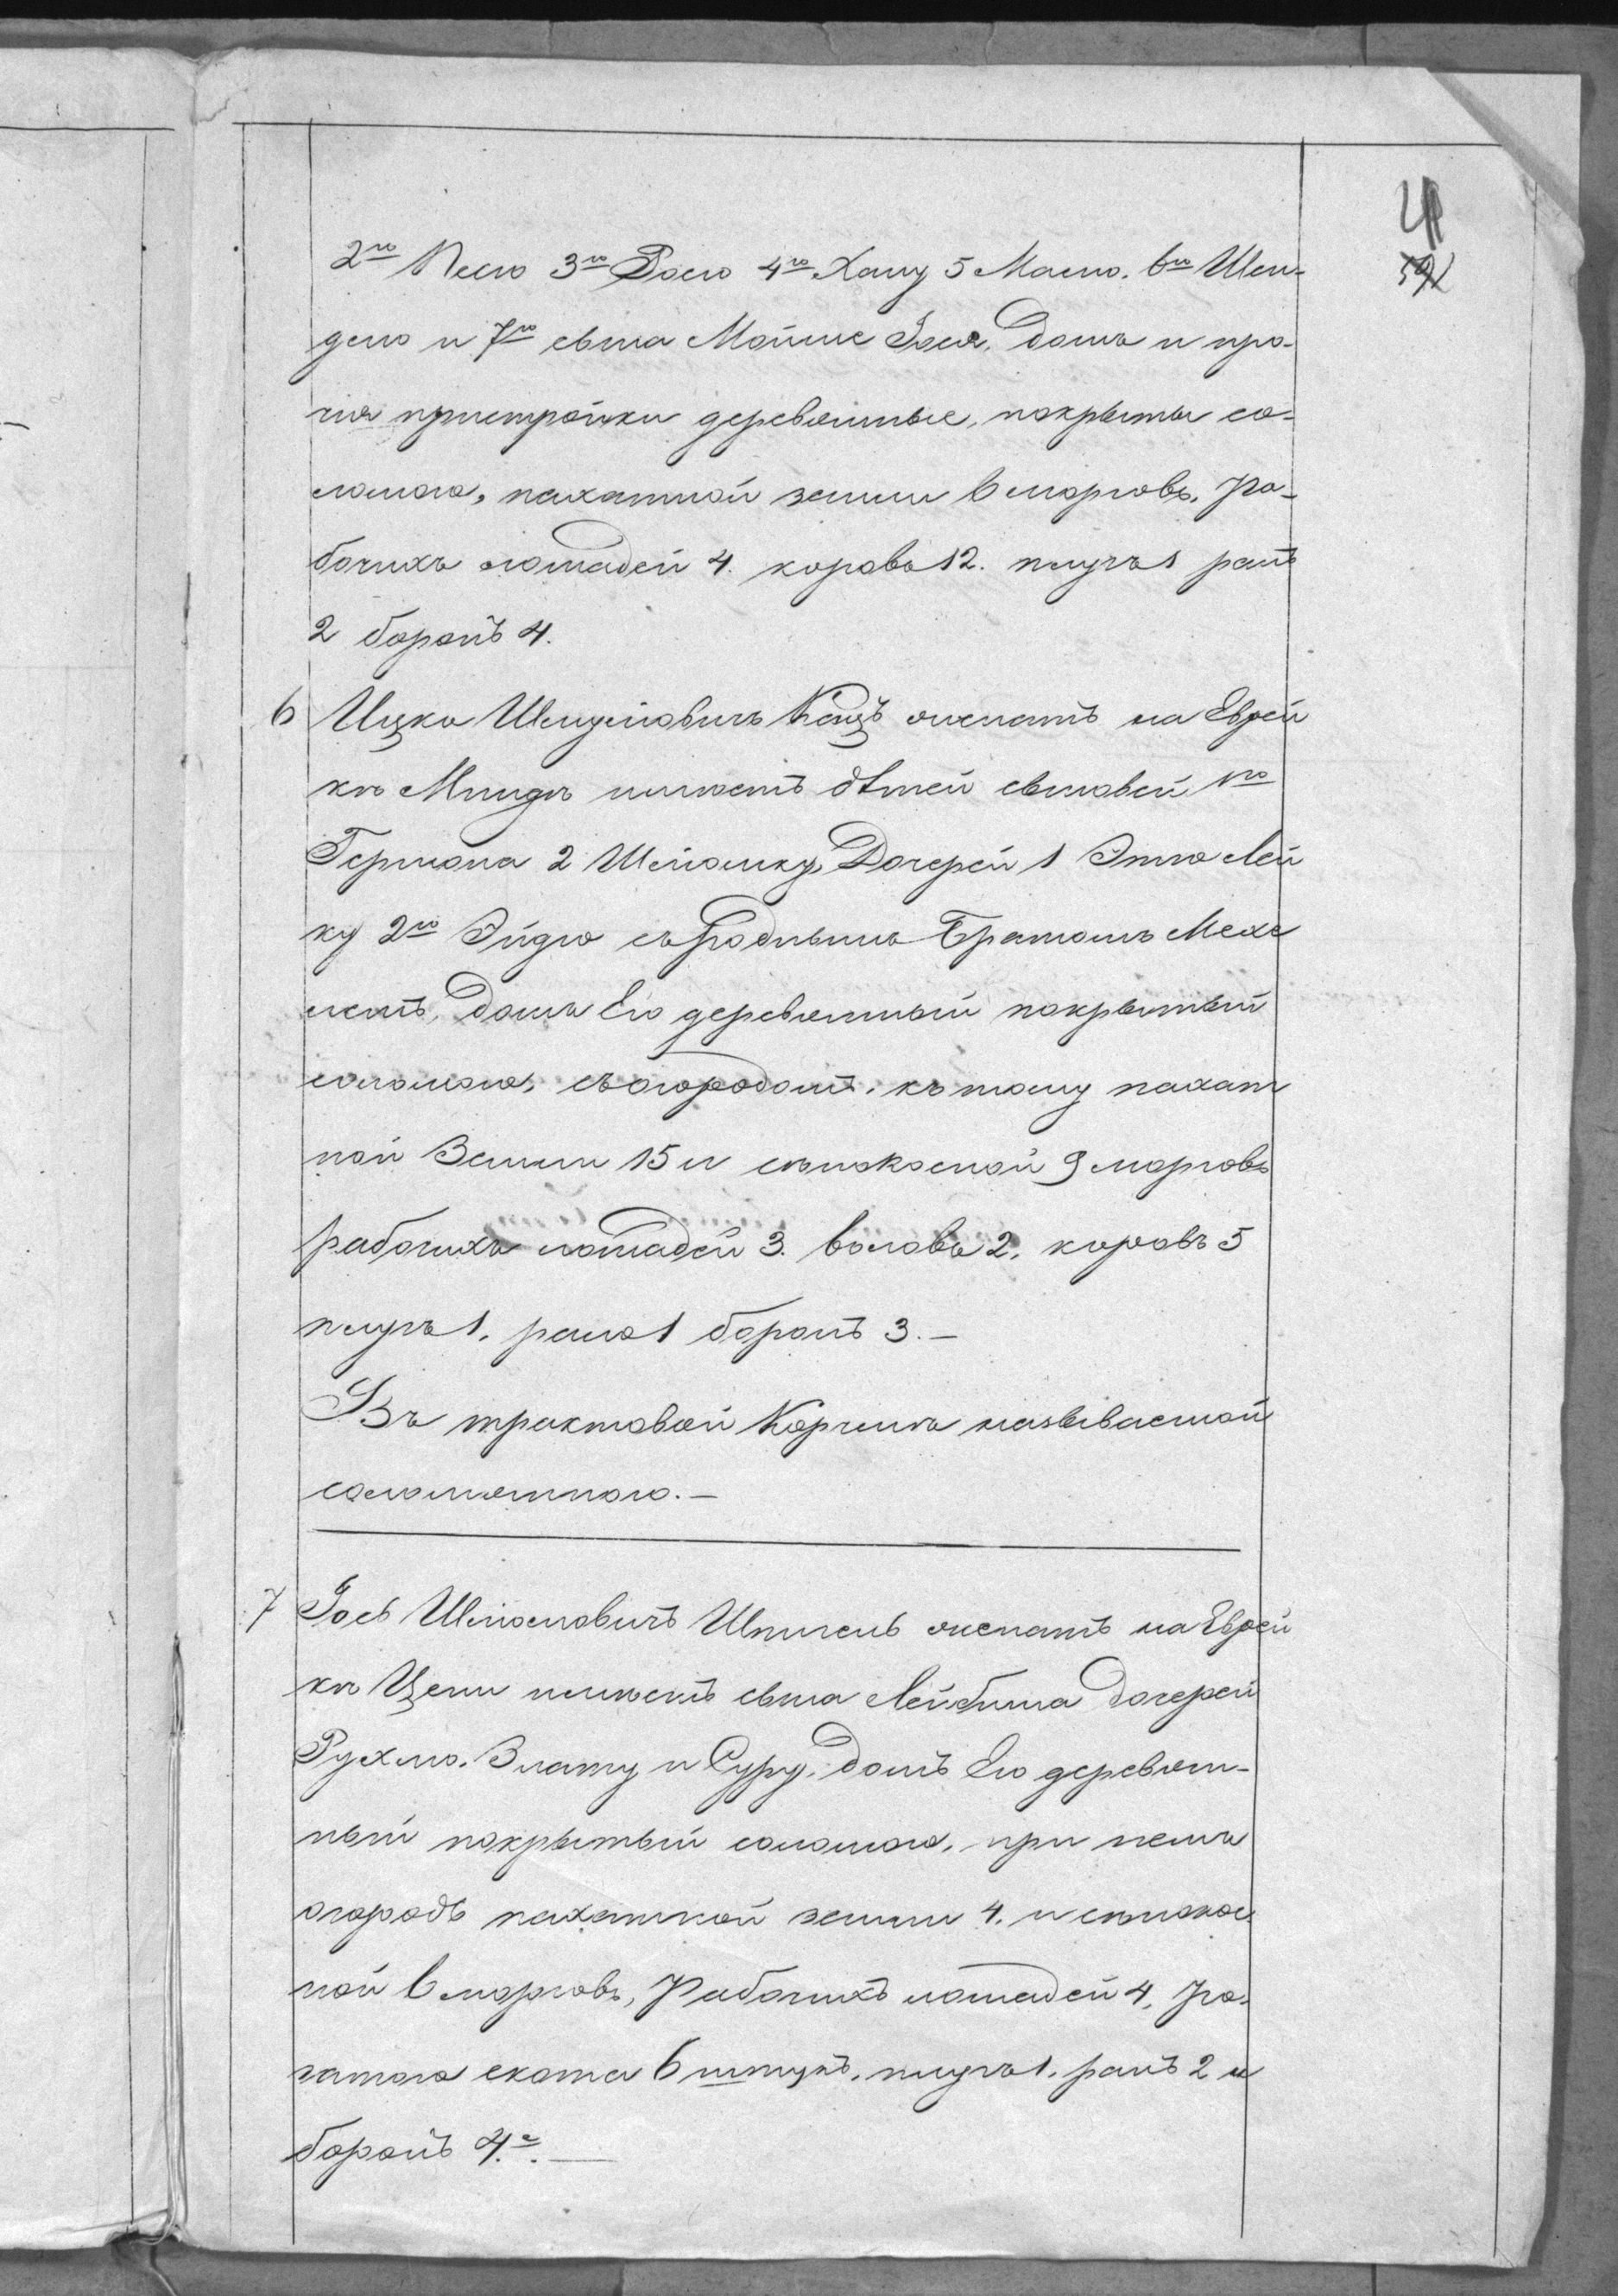 2го Песю 3го Росю 4го Хану 5 Масю. 6го Шен-
делю и 7го сына Мойше Іося, домъ и про-
чія пристройки деревянные, покрыты со-
ломою, пахатной земли 6 морговъ, ра-
бочихъ лошадей 4. коровъ 12. плугъ 1 ралъ
2 боронъ 4.
6 Ицко Шмуйловичъ Кацъ женатъ на Еврей
кѣ Миндѣ имѣетъ дѣтей сыновей 1го
Гершона 2 Шліомку, Дочерей 1 Этлю Лей
ку 2го Эйдлю съ Роднымъ Братомъ Мехе
лемъ, домъ Его деревянный покрытый
соломою, съ огородомъ. къ тому пахат
ной Земли 15 и сѣнокосной 9 морговъ
рабочихъ лошадей 3. воловъ 2, коровъ 5
плугъ 1, рало 1 боронъ 3.—
Въ трактовой Корчмѣ называемой
соломянною.—
7 Іось Шліомовичъ Шпигель женатъ на Еврей
кѣ Ципи имѣетъ сына Лейбиша дочерей
Рухлю. Злату и Суру, домъ Его деревян-
ный покрытый соломою, при немъ
огородъ пахатной земли 4. и сѣнокос
ной 6 морговъ, Рабочихъ лошадей 4, ро-
гатого скота 6 штукъ, плугъ 1. ралъ 2 и
боронъ 4.—